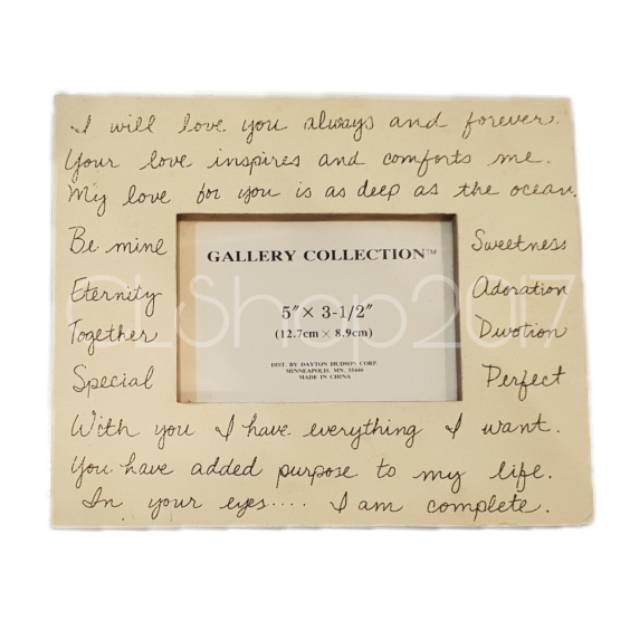 I will love you always and forever.
Your love inspires and comforts me.
My love for you is as deep as the ocean.
Be mine
Eternity
Together
Special
GALLERY COLLECTION™
5" × 3-1/2"
(12.7cm × 8.9cm)
DIST. BY DAYTON HUDSON CORP.
MINNEAPOLIS, MN. 55440
MADE IN CHINA
Sweetness
Adoration
Devotion
Perfect
With you I have everything I want.
You have added purpose to my life.
In your eyes.... I am complete.
CLShop2017